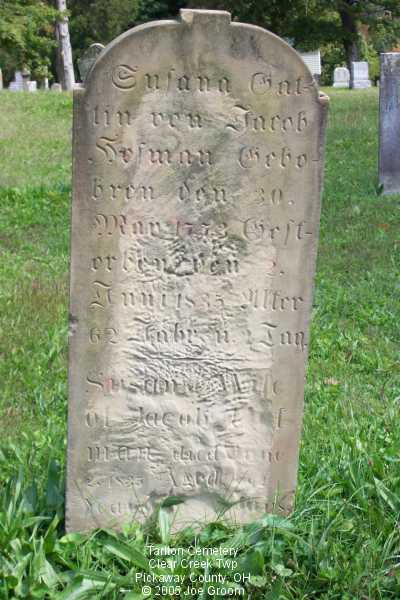 Susana Gat-
tin von Jacob
Hofman Gebo-
bren den 30.
May 1773 Gest-
orben den 2.
Juni 1835 Alter
62 Jahr u. Tag
Susana Wife
of Jacob Hof
man died June
2. 1835 Aged
years
Tarlton Cemetery
Clear Creek Twp
Pickaway County, OH
© 2005 Joe Groom